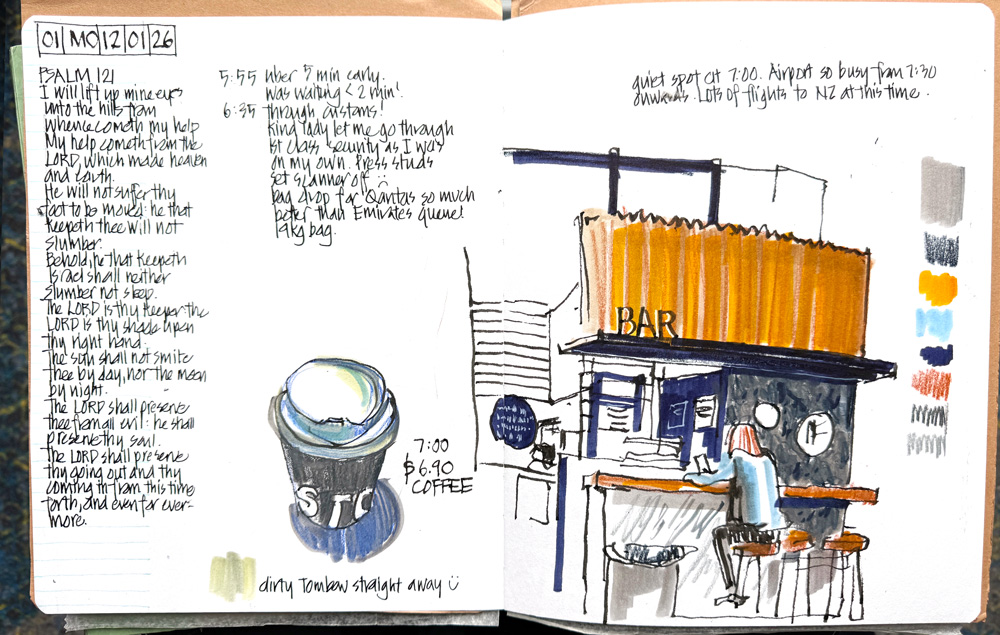 01 MO 12 01 26
PSALM 121
I will lift up mine eyes
unto the hills from
whence cometh my help
My help cometh from the
LORD, which made heaven
and earth.
He will not suffer thy
foot to be moved: he that
keepeth thee will not
slumber.
Behold, he that keepeth
Israel shall neither
slumber not sleep.
The LORD is thy keeper: the
LORD is thy shade upon
thy right hand.
The sun shall not smite
thee by day, nor the moon
by night.
The LORD shall preserve
thee from all evil: he shall
preserve thy soul.
The LORD shall preserve
thy going out and thy
coming in from this time
forth, and even for ever-
more.
5:55 uber 5 min early.
was waiting < 2 min!
6:35 through customs!
kind lady let me go through
1st class security as I was
on my own. Press studs
set scanner off :(
bag drop for Qantas so much
beter than Emirates queue!
19kg bag.
STO
7:00
$6.90
COFFEE
dirty Tombow straight away :)
quiet spot at 7:00. Airport so busy from 7:30
onwards. Lots of flights to NZ at this time.
BAR